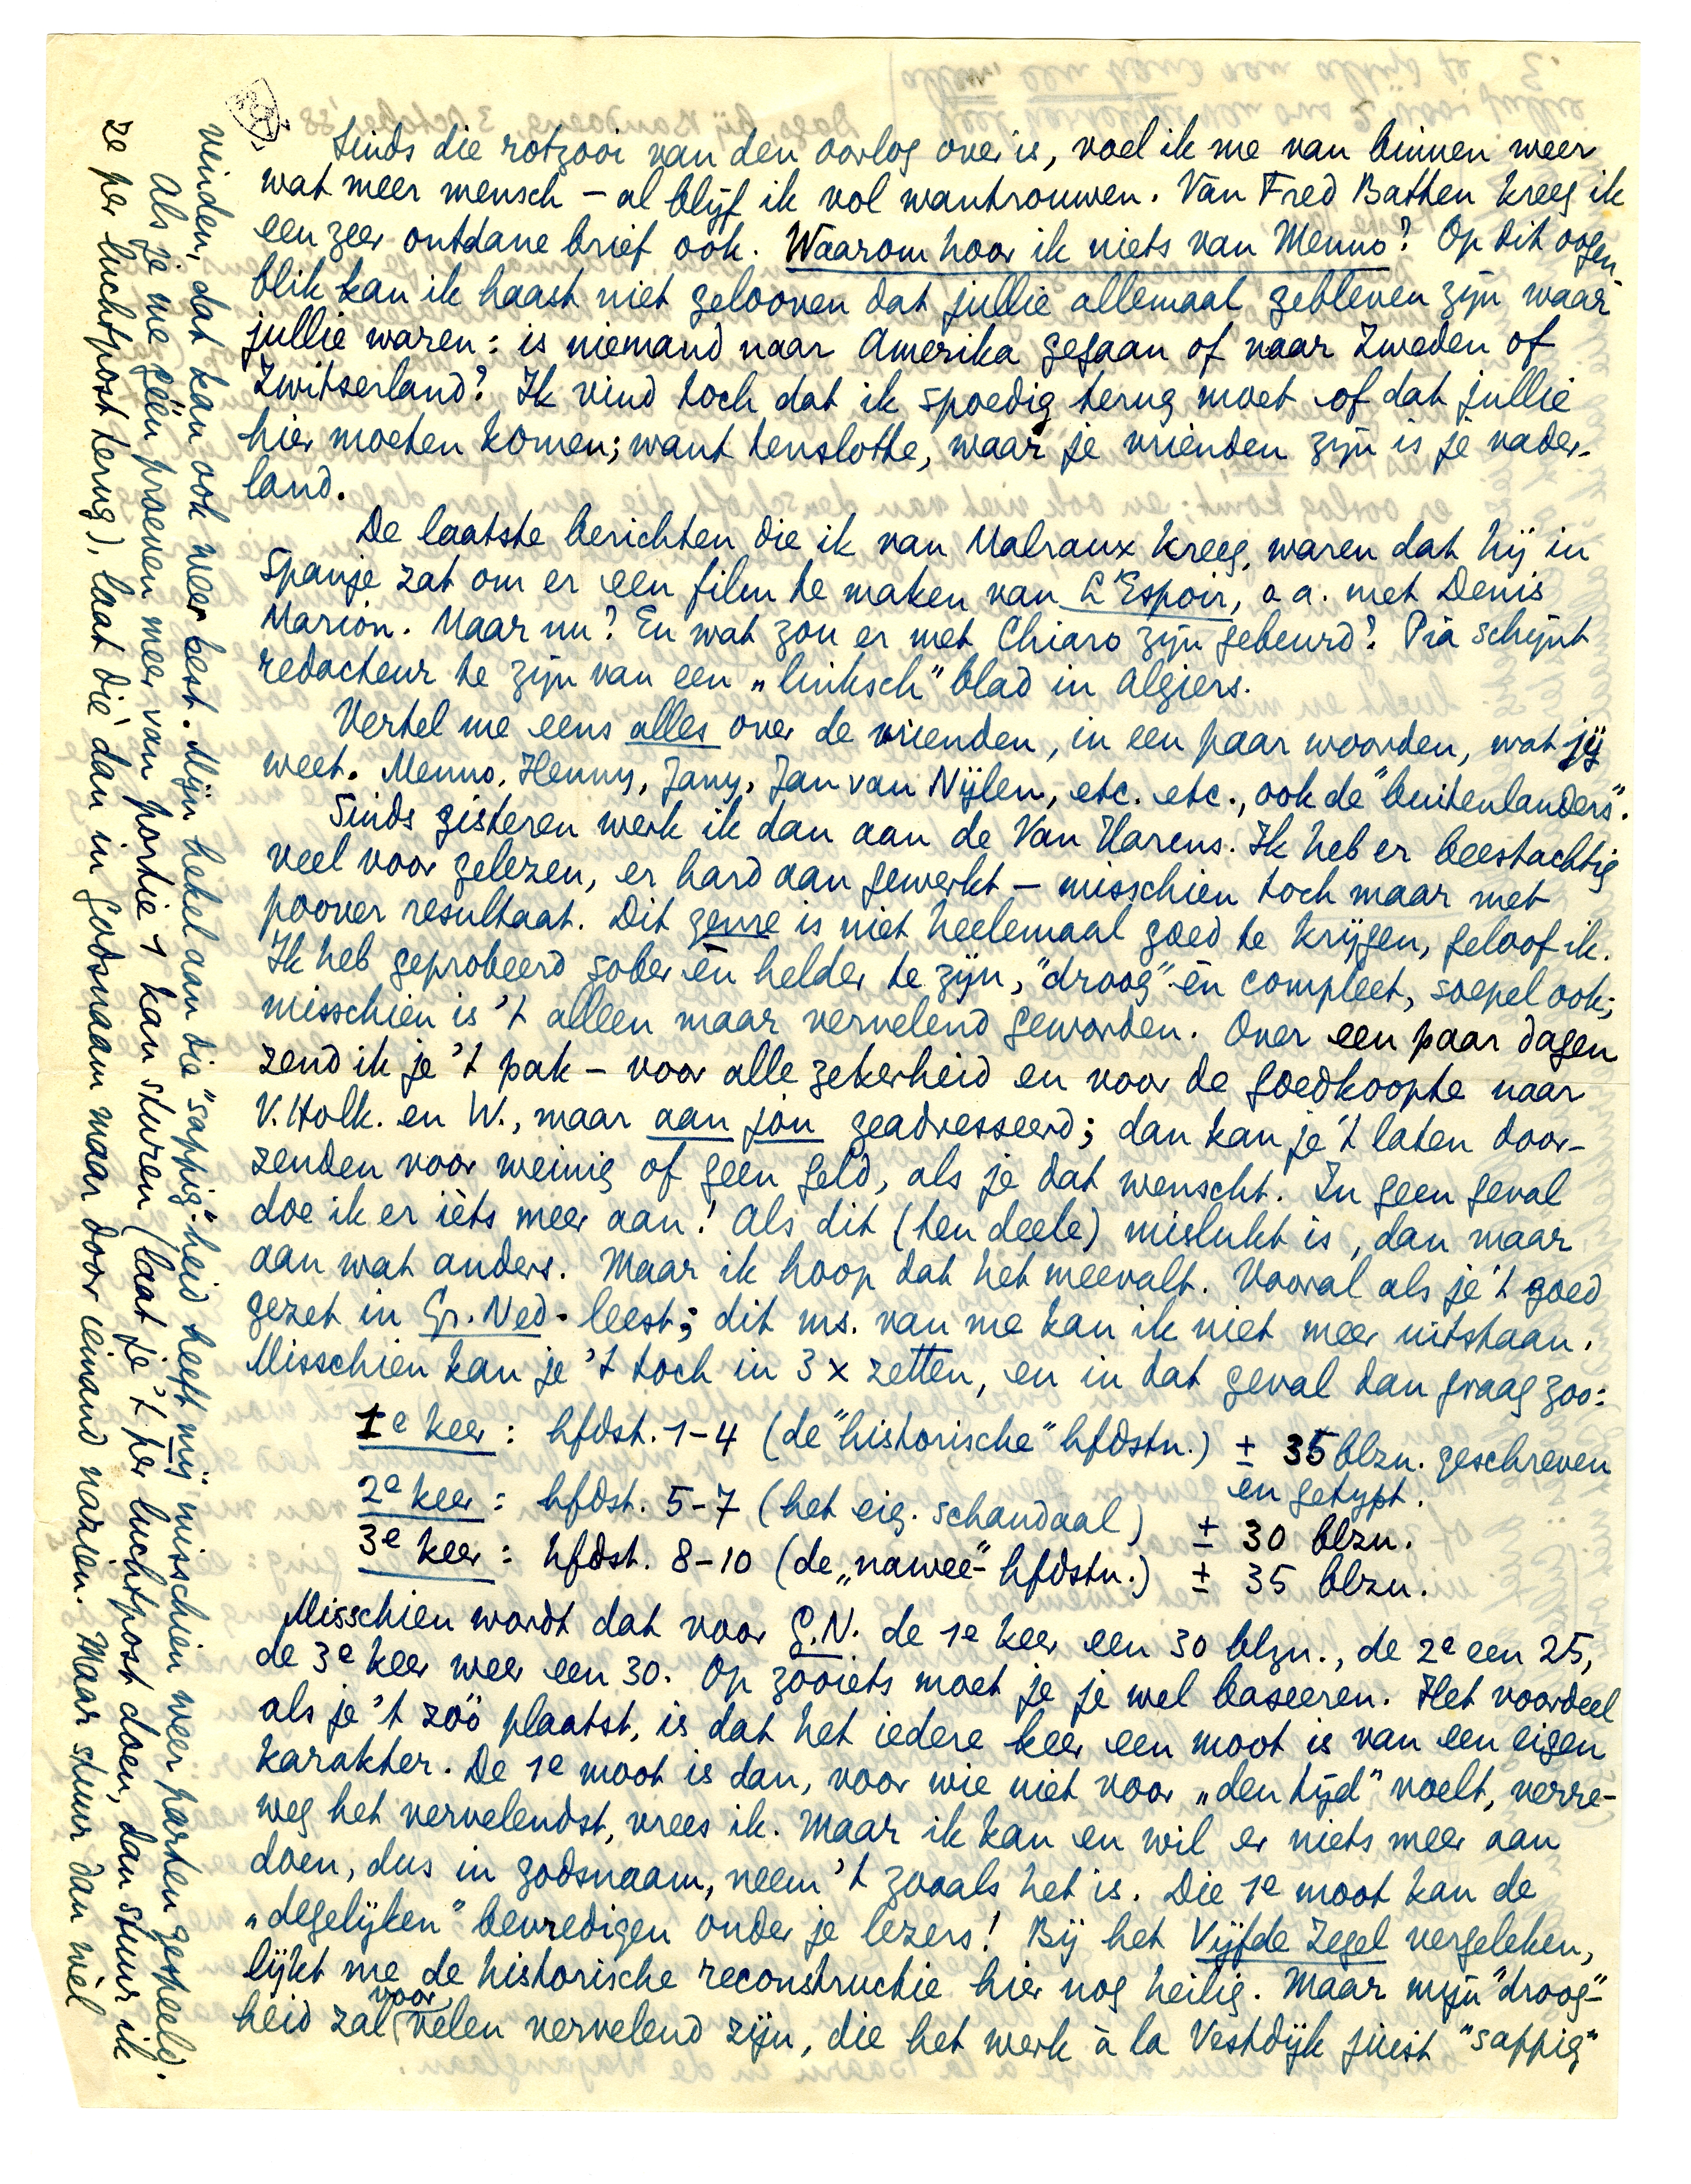 Sinds die rotzooi van den oorlog over is, voel ik me van binnen weer
wat meer mensch – al blijf ik vol wantrouwen. Van Fred Batten kreeg ik
een zeer ontdane brief ook. Waarom hoor ik niets van Menno? Op dit oogen-
blik kan ik haast niet gelooven dat jullie allemaal gebleven zijn waar
jullie waren: is niemand naar Amerika gegaan of naar Zweden of
Zwitserland? Ik vind toch dat ik spoedig terug moet of dat jullie
hier moeten komen; want tenslotte, waar je vrienden zijn is je vader-
land.
De laatste berichten die ik van Malraux kreeg, waren dat hij in
Spanje zat om er een film te maken van L'Espoir, o.a. met Denis
Marion. Maar nu? En wat zou er met Chiaro zijn gebeurd? Pia schijnt
redacteur te zijn van een „linksch" blad in Algiers.
Vertel me eens alles over de vrienden, in een paar woorden, wat jij
weet. Menno, Henny, Jany, Jan van Nijlen, etc. etc., ook de "buitenlanders".
Sinds gisteren werk ik dan aan de Van Harens. Ik heb er beestachtig
veel voor gelezen, er hard aan gewerkt – misschien toch maar met
poover resultaat. Dit genre is niet heelemaal goed te krijgen, geloof ik.
Ik heb geprobeerd sober én helder te zijn, "droog" én compleet, soepel ook;
misschien is 't alleen maar vervelend geworden. Over een paar dagen
zend ik je 't pak – voor alle zekerheid en voor de goedkoopte naar
V. Holk. en W., maar aan jou geadresseerd; dan kan je 't laten door-
zenden voor weinig of geen geld, als je dat wenscht. In geen geval
doe ik er ièts meer aan! Als dit (ten deele) mislukt is, dan maar
aan wat anders. Maar ik hoop dat het meevalt. Vooral als je 't goed
gezet in Gr. Ned. leest; dit ms. van me kan ik niet meer uitstaan.
Misschien kan je 't toch in 3 x zetten, en in dat geval dan graag zoo:
1e keer: hfdst. 1-4 (de "historische" hfdstn.) ± 35 blzn. geschreven
en getypt.
2e keer: hfdst. 5-7 (het eig. schandaal) ± 30 blzn.
3e keer: hfdst. 8-10 (de „nawee"-hfdstn.) ± 35 blzn.
Misschien wordt dat voor G.N. de 1e keer een 30 blzn., de 2e een 25,
de 3e keer weer een 30. Op zooiets moet je je wel baseeren. Het voordeel
als je 't zóó plaatst, is dat het iedere keer een moot is van een eigen
karakter. De 1e moot is dan, voor wie niet voor „den tijd" voelt, verre-
weg het vervelendst, vrees ik. Maar ik kan en wil er niets meer aan
doen, dus in godsnaam, neem 't zooals het is. Die 1e moot kan de
„degelijken" bevredigen onder je lezers! Bij het Vijfde Zegel vergeleken,
lijkt me de historische reconstructie hier nog heilig. Maar mijn "droog"-
heid zal voor velen vervelend zijn, die het werk à la Vestdijk juist "sappig"
vinden, dat kan ook weer best. Mijn hekel aan die "sappig"-heid heeft mij misschien weer parten gespeeld.
Als je me géén proeven meer van portie 1 kan sturen (laat je 't per luchtpost doen, dan stuur ik
ze per luchtpost terug), laat die dan in godsnaam maar door iemand nazien. Maar stuur dan wèl